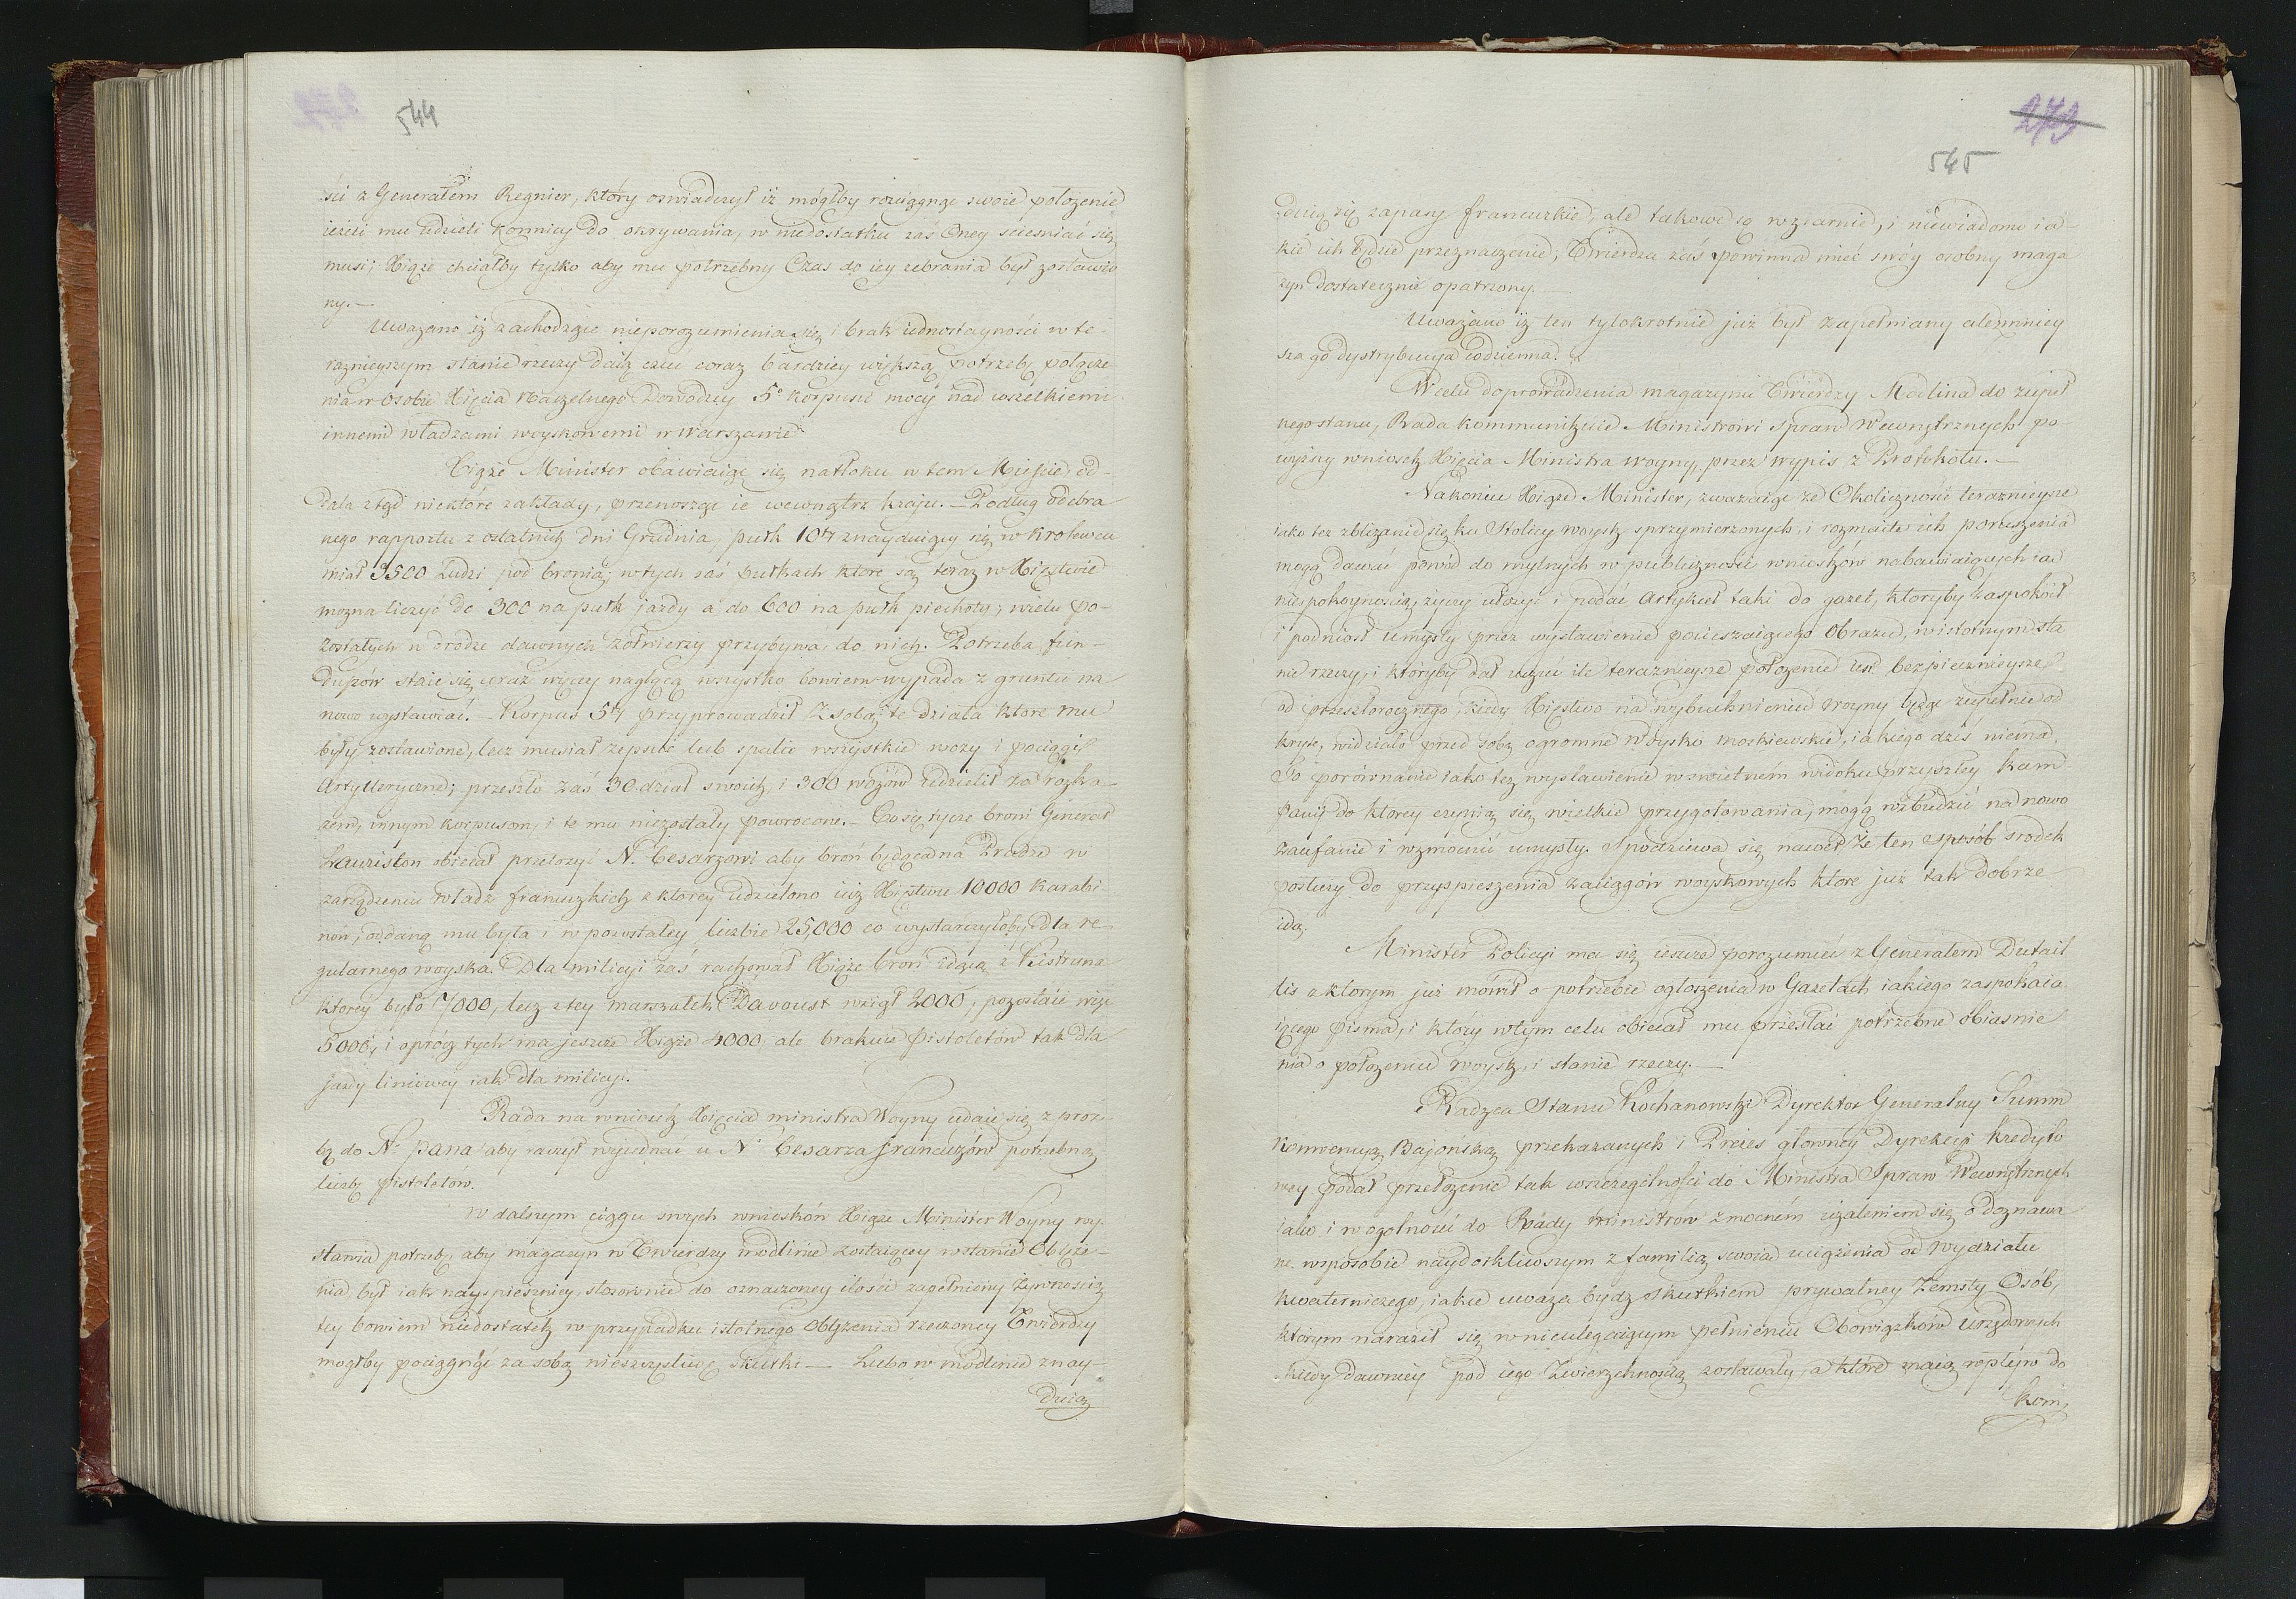 544
ści z Generałem Regnier, który oswiadczył iż mógłby rozciągnąć swoie położenie
ieżeli mu udzieli konnicy do okrywania, w niedostatku zaś oney ściesniać się
musi; Xiąże chciałby tylko aby mu potrzebny czas do iey zebrania był zostawio
ny.—
Uważano iż zachodzące nieporozumienia się i brak iednostayności w te-
raznieyszym stanie rzeczy daią czuć coraz bardziey większą potrzebę połącze
nia w osobie Xięcia Naczelnego Dowodzcy 5o korpusu mocy nad wszelkiemi
innemi władzami woyskowemi w Warszawie
Xiąże Minister obawiaiąc się natłoku w tem Mieście, od-
dala ztąd niektóre zakłady, przenosząc ie wewnątrz kraju. — Podług odebra
nego rapportu z ostatnich dni Grudnia, pułk 10ty znayduiący się w Krolewcu
miał 3500 Ludzi pod bronią; w tych zaś pułkach ktore są teraz w Xięstwie
mozna liczyć do 300 na pułk jazdy a do 600 na pułk piechoty; wielu po-
zostałych w drodze dawnych żołnierzy przybywa do nich. Potrzeba fun-
duszów staie się coraz więcey naglącą wszystko bowiem wypada z gruntu na
nowo wystawiać. — Korpus 5ty przyprowadził z sobą te działa ktore mu
były zostawione, lecz musiał zepsuć lub spalić wszystkie wozy i pociągi
Artylleryczne; przeszło zaś 30 dział swoich i 300 wozów udzielił za rozka-
zem, innym korpusom, i te mu niezostały powrocone. — Co się tycze broni Generał
Lauriston obiecał przełożyć N. Cesarzowi aby broń będąca na Pradze w
zarządzeniu władz francuzkich z ktorey udzielono iuż Xięstwu 10000 karabi-
nów, oddaną mu była i w pozostałey liczbie 25,000 co wystarczyłoby dla re
gularnego woyska. Dla milicyi zaś rachował Xiąże broń idącą z Kistryna
ktorey było 7000, lecz z tey marszałek Davoust wziął 2000, pozostaie więc
5000, i oprócz tych ma jeszcze Xiąże 4000, ale brakuie pistoletów tak dla
jazdy liniowey iak dla milicyi.
Rada na wniosek Xięcia ministra Woyny udaie się z proz-
bą do No pana aby raczył wyiednać u No Cesarza francuzów potrzebną
liczbę pistoletów.
W dalszym ciągu swych wniosków Xiąże Minister Woyny wy-
stawia potrzebę aby magazyn w Twierdzy modlinie zostaiącey w stanie oblęże-
nia, był iak nayspieszniey, stosownie do oznaczoney ilości zapełniony żywnością
tey bowiem niedostatek w przypadku istotnego oblężenia rzeczoney Twierdzy
mogłby pociągnąć za sobą nieszczęśliwe skutki — Lubo w modlinie znay-
duią
273
545
duią się zapasy francuzkie, ale takowe są w ziarnie, i niewiadomo ia-
kie ich będzie przeznaczenie; Twierdza zaś powinna mieć swóy osobny maga
zyn dostatecznie opatrzony.
Uważano iż ten tylokrotnie już był zapełniany ale zmniey
sza go dystrybucya codzienna.
W celu doprowadzenia magazynu Twierdzy Modlina do zupeł
nego stanu, Rada kommunikuie Ministrowi Spraw Wewnętrznych po-
wyższy wniosek Xięcia Ministra woyny, przez wypis z Protokołu. —
Nakoniec Xiąże Minister, zwazaiąc że okoliczności teraznieysze
iako też zbliżanie się ku Stolicy woysk sprzymierzonych, i rozmaite ich poruszenia
mogą dawać powód do mylnych w publiczności wniosków nabawiaiących ią
niespokoynością, życzy ułożyć i podać Artykuł taki do gazet, ktoryby zaspokoił
i podniosł umysły przez wystawienie pocieszaiącego obrazu, w istotnym sta
nie rzeczy, i któryby dał uczuć ile teraznieysze położenie iest bezpiecznieysze
od przeszłorocznego, kiedy Xięstwo na wybuchnieniu woyny będąc zupełnie od
kryte, widziało przed sobą ogromne Woysko moskiewskie, iakiego dziś niema.
To porównanie iako też wystawienie w swietném widoku przyszłey kam
panii do ktorey czynią się wielkie przygotowania, mogą wzbudzić na nowo
zaufanie i wzmocnić umysły. Spodziewa się nawet że ten sposób srodek
posłuży do przyspieszenia zaciągów woyskowych ktore już tak dobrze
idą.
Minister Policyi ma się ieszcze porozumieć z Generałem Dutail
lis z ktorym już mówił o potrzebie ogłoszenia w Gazetach iakiego zaspokaia
iącego pisma, i który w tym celu obiecał mu przesłać potrzebne obiasnie
nia o położeniu woysk, i stanie rzeczy. —
Radzca Stanu Kochanowski Dyrektor Generalny Summ
Konwencyą Bajońską przekazanych i Prezes głowney Dyrekcyi kredyto
wey podał przełożenie tak wszczególności do Ministra Spraw Wewnętrznych
iako i w ogolności do Rady ministrów z mocném użaleniem się o doznawa
ne w sposobie naydotkliwszym z familią swoią uciążenia od wydziału
kwaterniczego, iakie uważa bydz skutkiem prywatney zemsty Osób,
którym naraził się w nieulegaiącym pełnieniu Obowiązków urzędowych
kiedy dawniey pod iego zwierzchnością zostawały, a które maią wpływ do
kom,